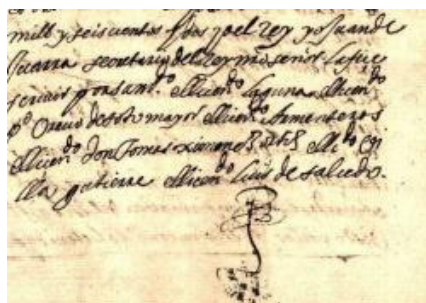 mill y seiscientos y dos yo el Rey yo Juan de
ydarra secretario del Rey nro señor la fize
screuir por su mandº. ellicenᵈº laguna ellicenᵈº
Pº de sotomayor ellicenᵈº Armenteros
ellicenᵈº don Tomas ximenez ellᵈº
gutierre ellicenᵈº luis de salcedo.